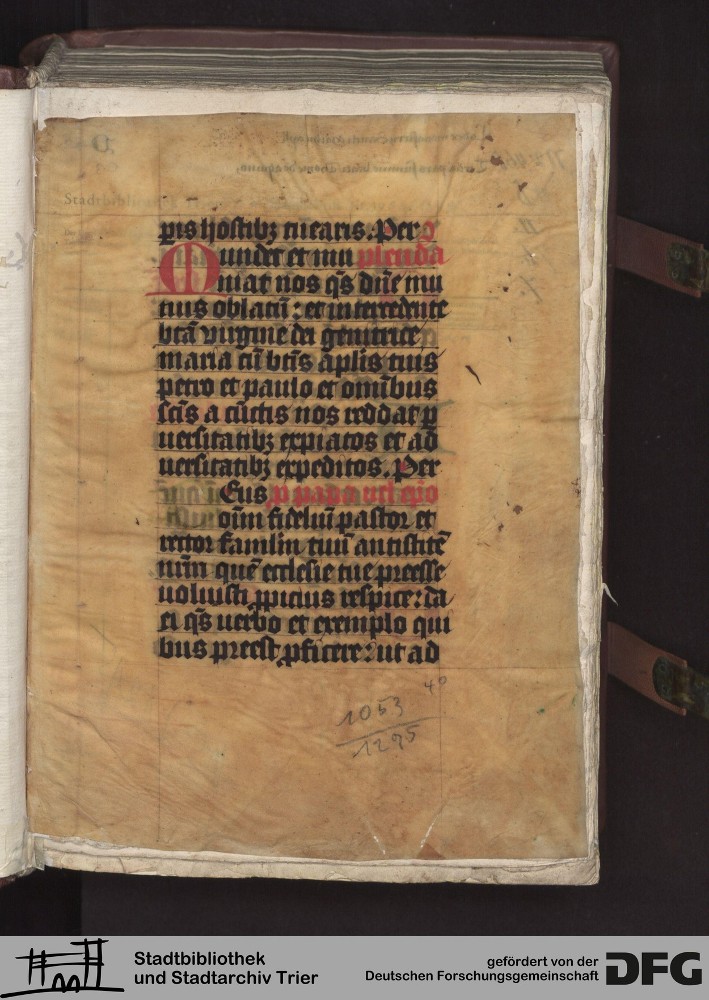 pis hostibꝫ tuearis. Per
Mundet et mu plenda
niat nos q̄s dn̄e mu
nus oblatū : et intercedente
btā virgine dei genitrice
maria cū btīs aplīs tuis
petro et paulo et omībus
scīs a cūctis nos reddat ꝑ
uersitatibꝫ expiatos et ad
uersitatibꝫ expeditos. Per
Eus ꝓ papa uel ep̄o
oīm fideliū pastor et
rector famlm tuū antistitē
nr̄m quē ecclesie tue preesse
uoluisti ꝓpicius respice : da
ei q̄s uerbo et exemplo qui
bus preest ꝓficere : ut ad
40
1053
1295
Stadtbibliothek
und Stadtarchiv Trier
gefördert von der
Deutschen Forschungsgemeinschaft
DFG